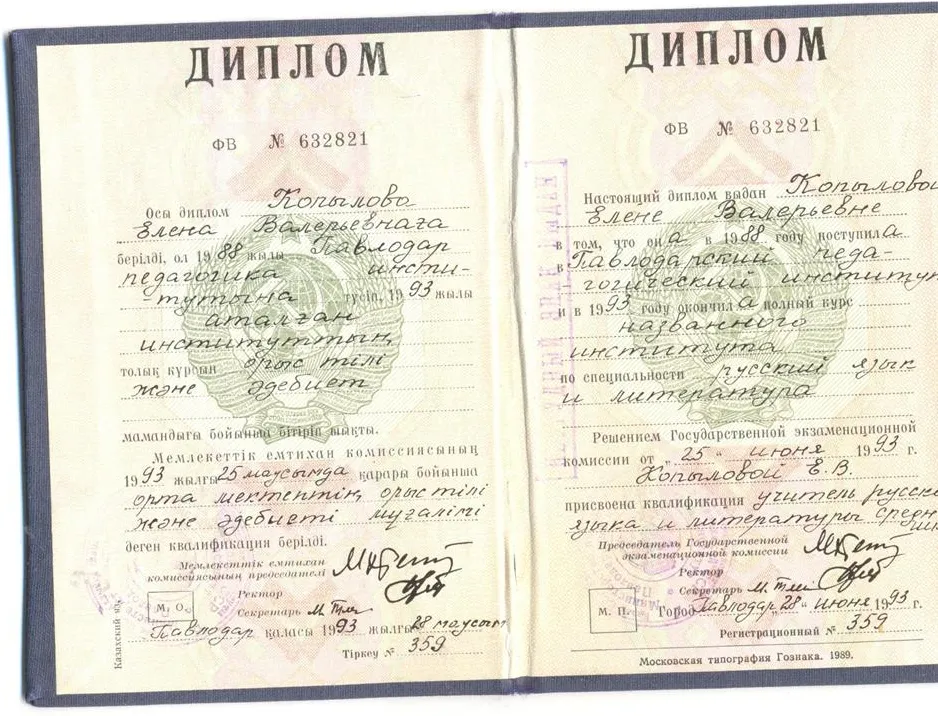 ДИПЛОМ
ФВ № 632821
Осы диплом Копылова
Елена Валерьевнаға
берілді, ол 1988 жылы Павлодар
педагогика инсти-
тутына түсіп, 1993 жылы
аталған
институттың
толық курсын орыс тілі
және әдебиет
мамандығы бойынша бітіріп шықты.
Мемлекеттік емтихан комиссиясының
1993 жылғы 25 маусымда қарары бойынша
орта мектептің орыс тілі
және әдебиеті мұғалімі
деген квалификация берілді.
Мемлекеттік емтихан
комиссиясының председателі
Ректор
Секретарь
М. О.
Павлодар қаласы 1993 жылғы 28 маусым
Тіркеу № 359
Казахский
ДИПЛОМ
ФВ № 632821
Настоящий диплом выдан Копыловой
Елене Валерьевне
в том, что она в 1988 году поступила
в Павлодарский педа-
гогический институт
и в 1993 году окончила полный курс
названного
института
по специальности русский язык
и литература
Решением Государственной экзаменационной
комиссии от "25" июня 1993 г.
Копыловой Е. В.
присвоена квалификация учитель русско
языка и литературы средн
Председатель Государственной
экзаменационной комиссии
Ректор
Секретарь
М. П.
Город Павлодар "28" июня 1993 г.
Регистрационный № 359
Московская типография Гознака. 1989.